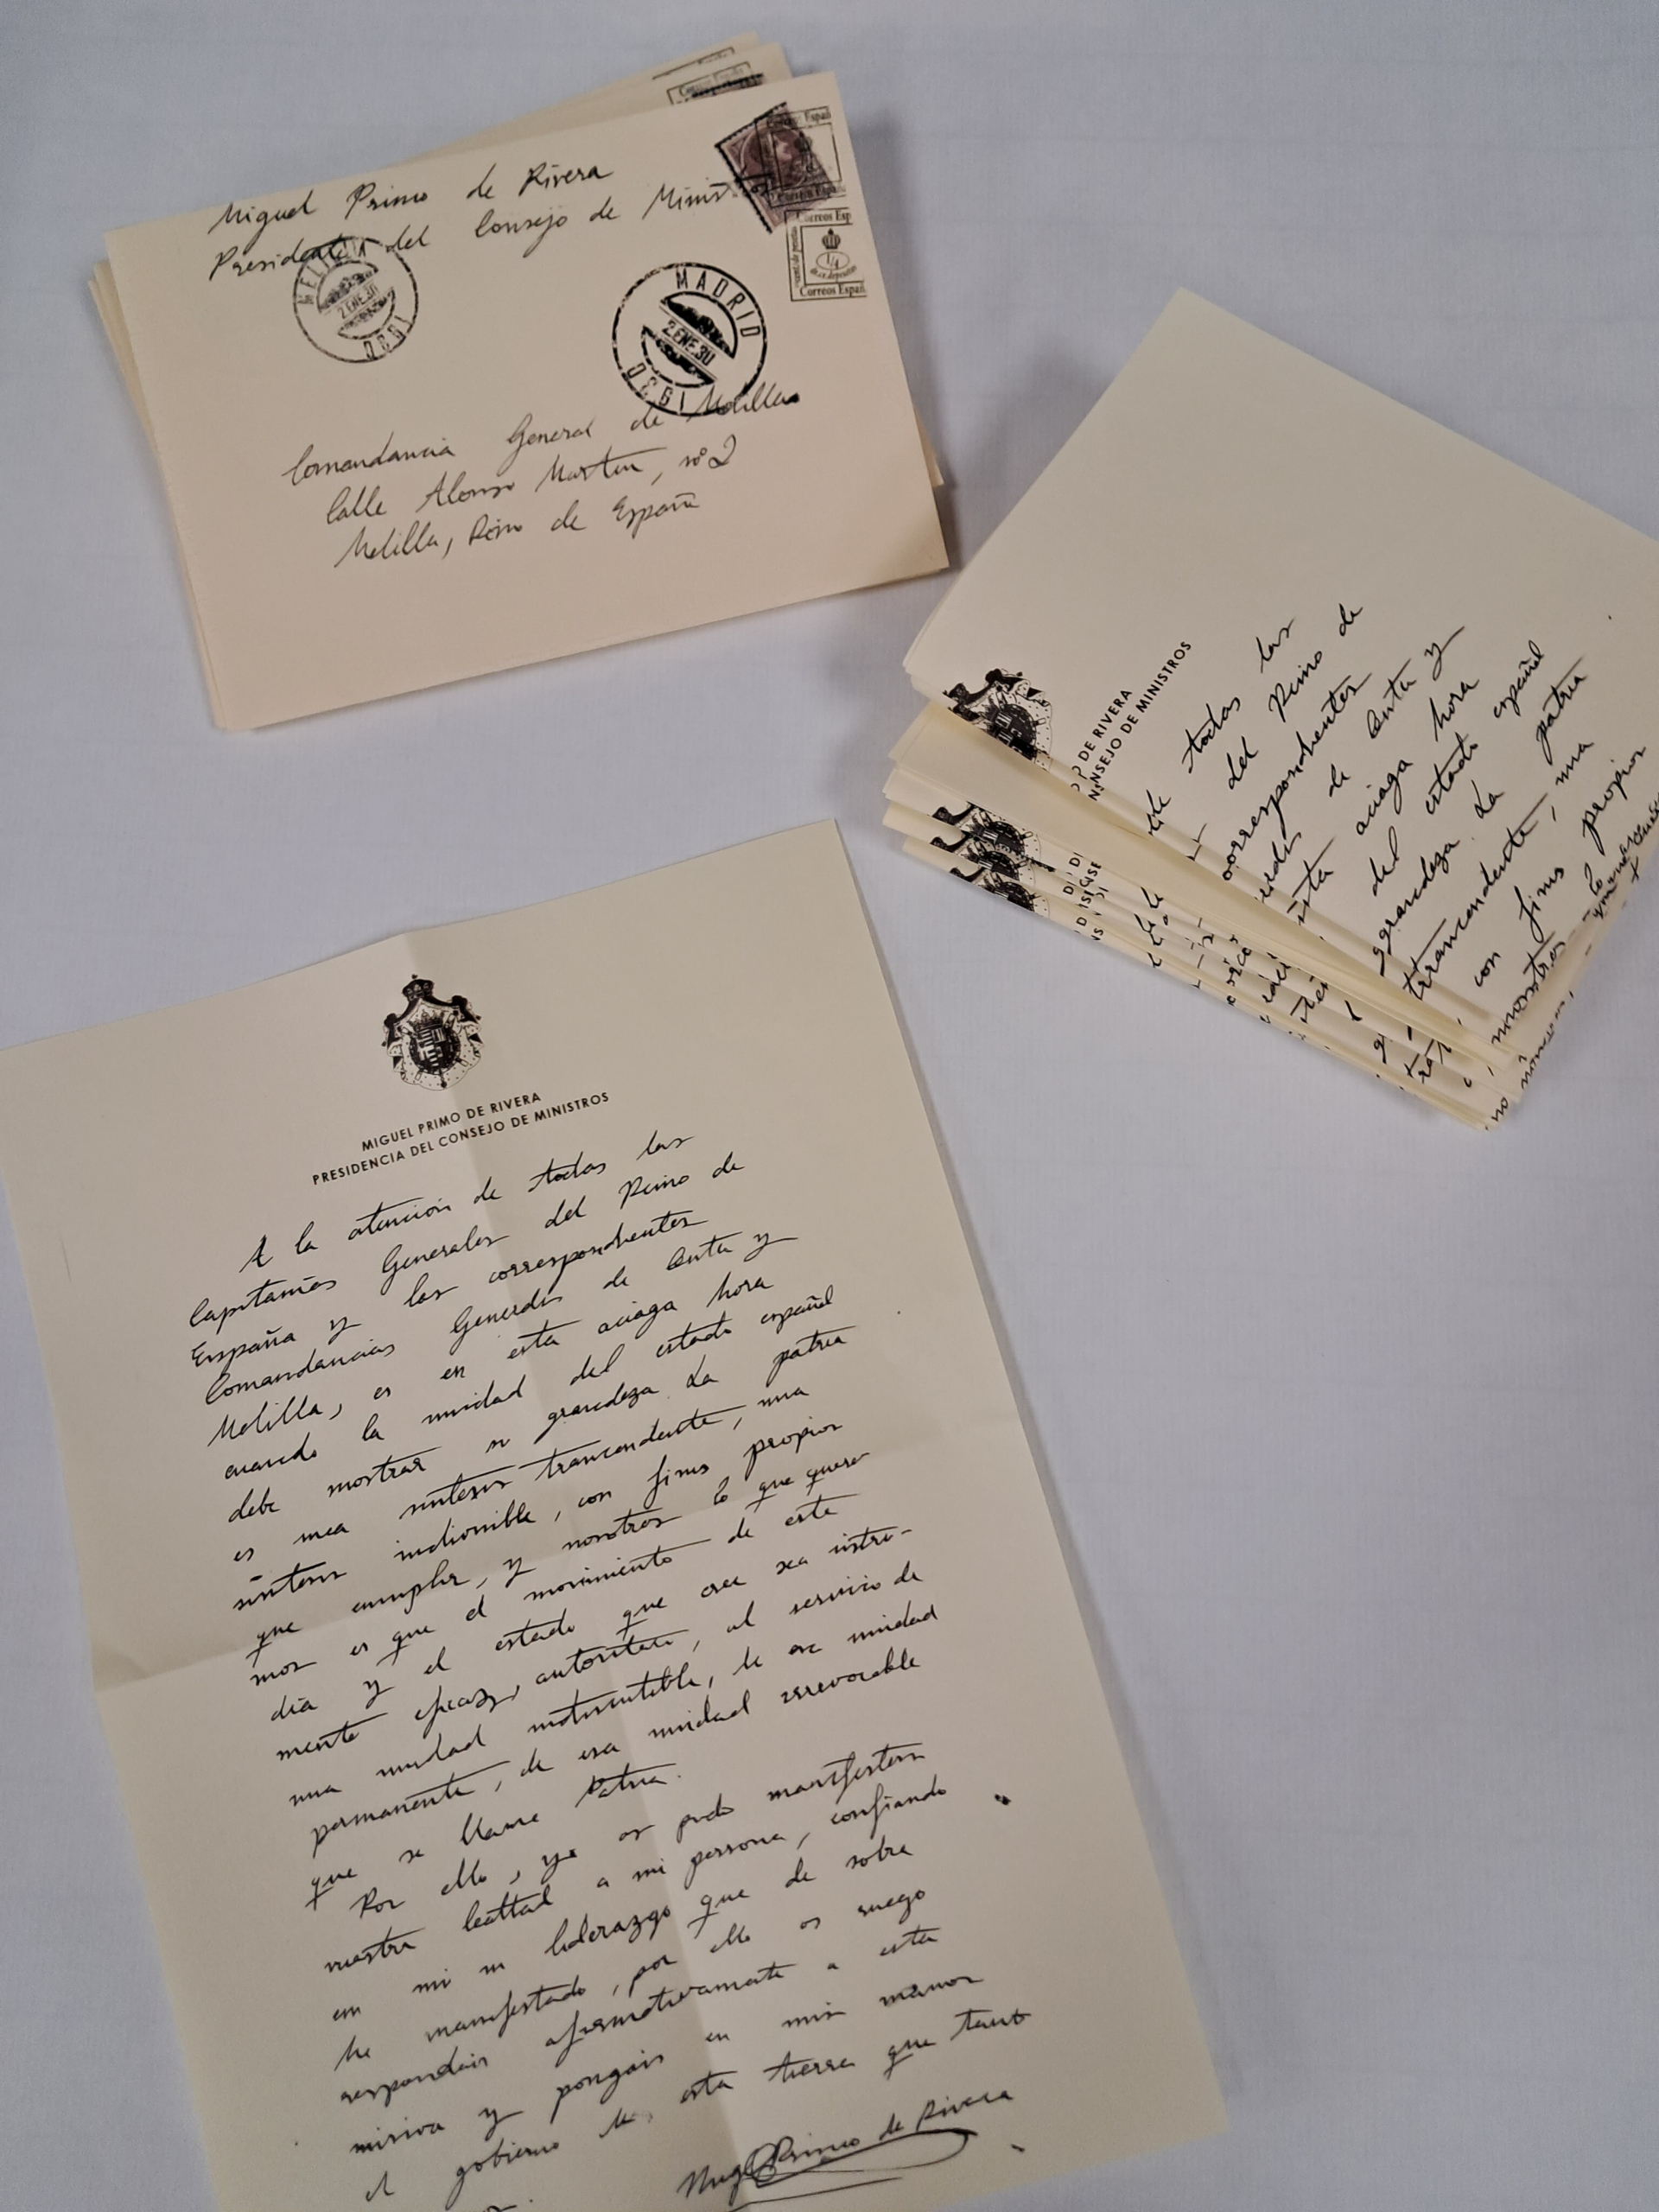 Miguel Primo de Rivera
Presidente del Consejo de Minist
MELILLA
2 ENE 30
1930
MADRID
2 ENE 30
1930
Correos Españ
Correos Españ
Correos Esp
Correos Españ
Comandancia General de Melilla
Calle Alonso Martín, nº 2
Melilla, Reino de España
O DE RIVERA
NSEJO DE MINISTROS
de todas las
del Reino de
correspondientes
de Ceuta y
esta aciaga hora
del estado español
grandeza. La patria
trancendente, una
con fines propios
nosotros lo
MIGUEL PRIMO DE RIVERA
PRESIDENCIA DEL CONSEJO DE MINISTROS
A la atención de todas las
Capitanías Generales del Reino de
España y las correspondientes
Comandancias Generales de Ceuta y
Melilla, es en esta aciaga hora
cuando la unidad del estado español
debe mostrar su grandeza. La patria
es una síntesis trancendente, una
síntesis indivisible, con fines propios
que cumplir, y nosotros lo que quere-
mos es que el movimiento de este
día y el estado que cree sea instru-
mento eficaz, autoritario, al servicio de
una unidad indiscutible, de esa unidad
permanente, de esa unidad irrevocable
que se llama Patria.
Por ello, yo os pido manifesten
vuestra lealtad a mi persona, confiando
en mi su liderazgo que de sobra
he manifestado, por ello os ruego
respondais afirmativamente a esta
misiva y pongais en mis manos
el gobierno de esta tierra que tanto
Miguel Primo de Rivera